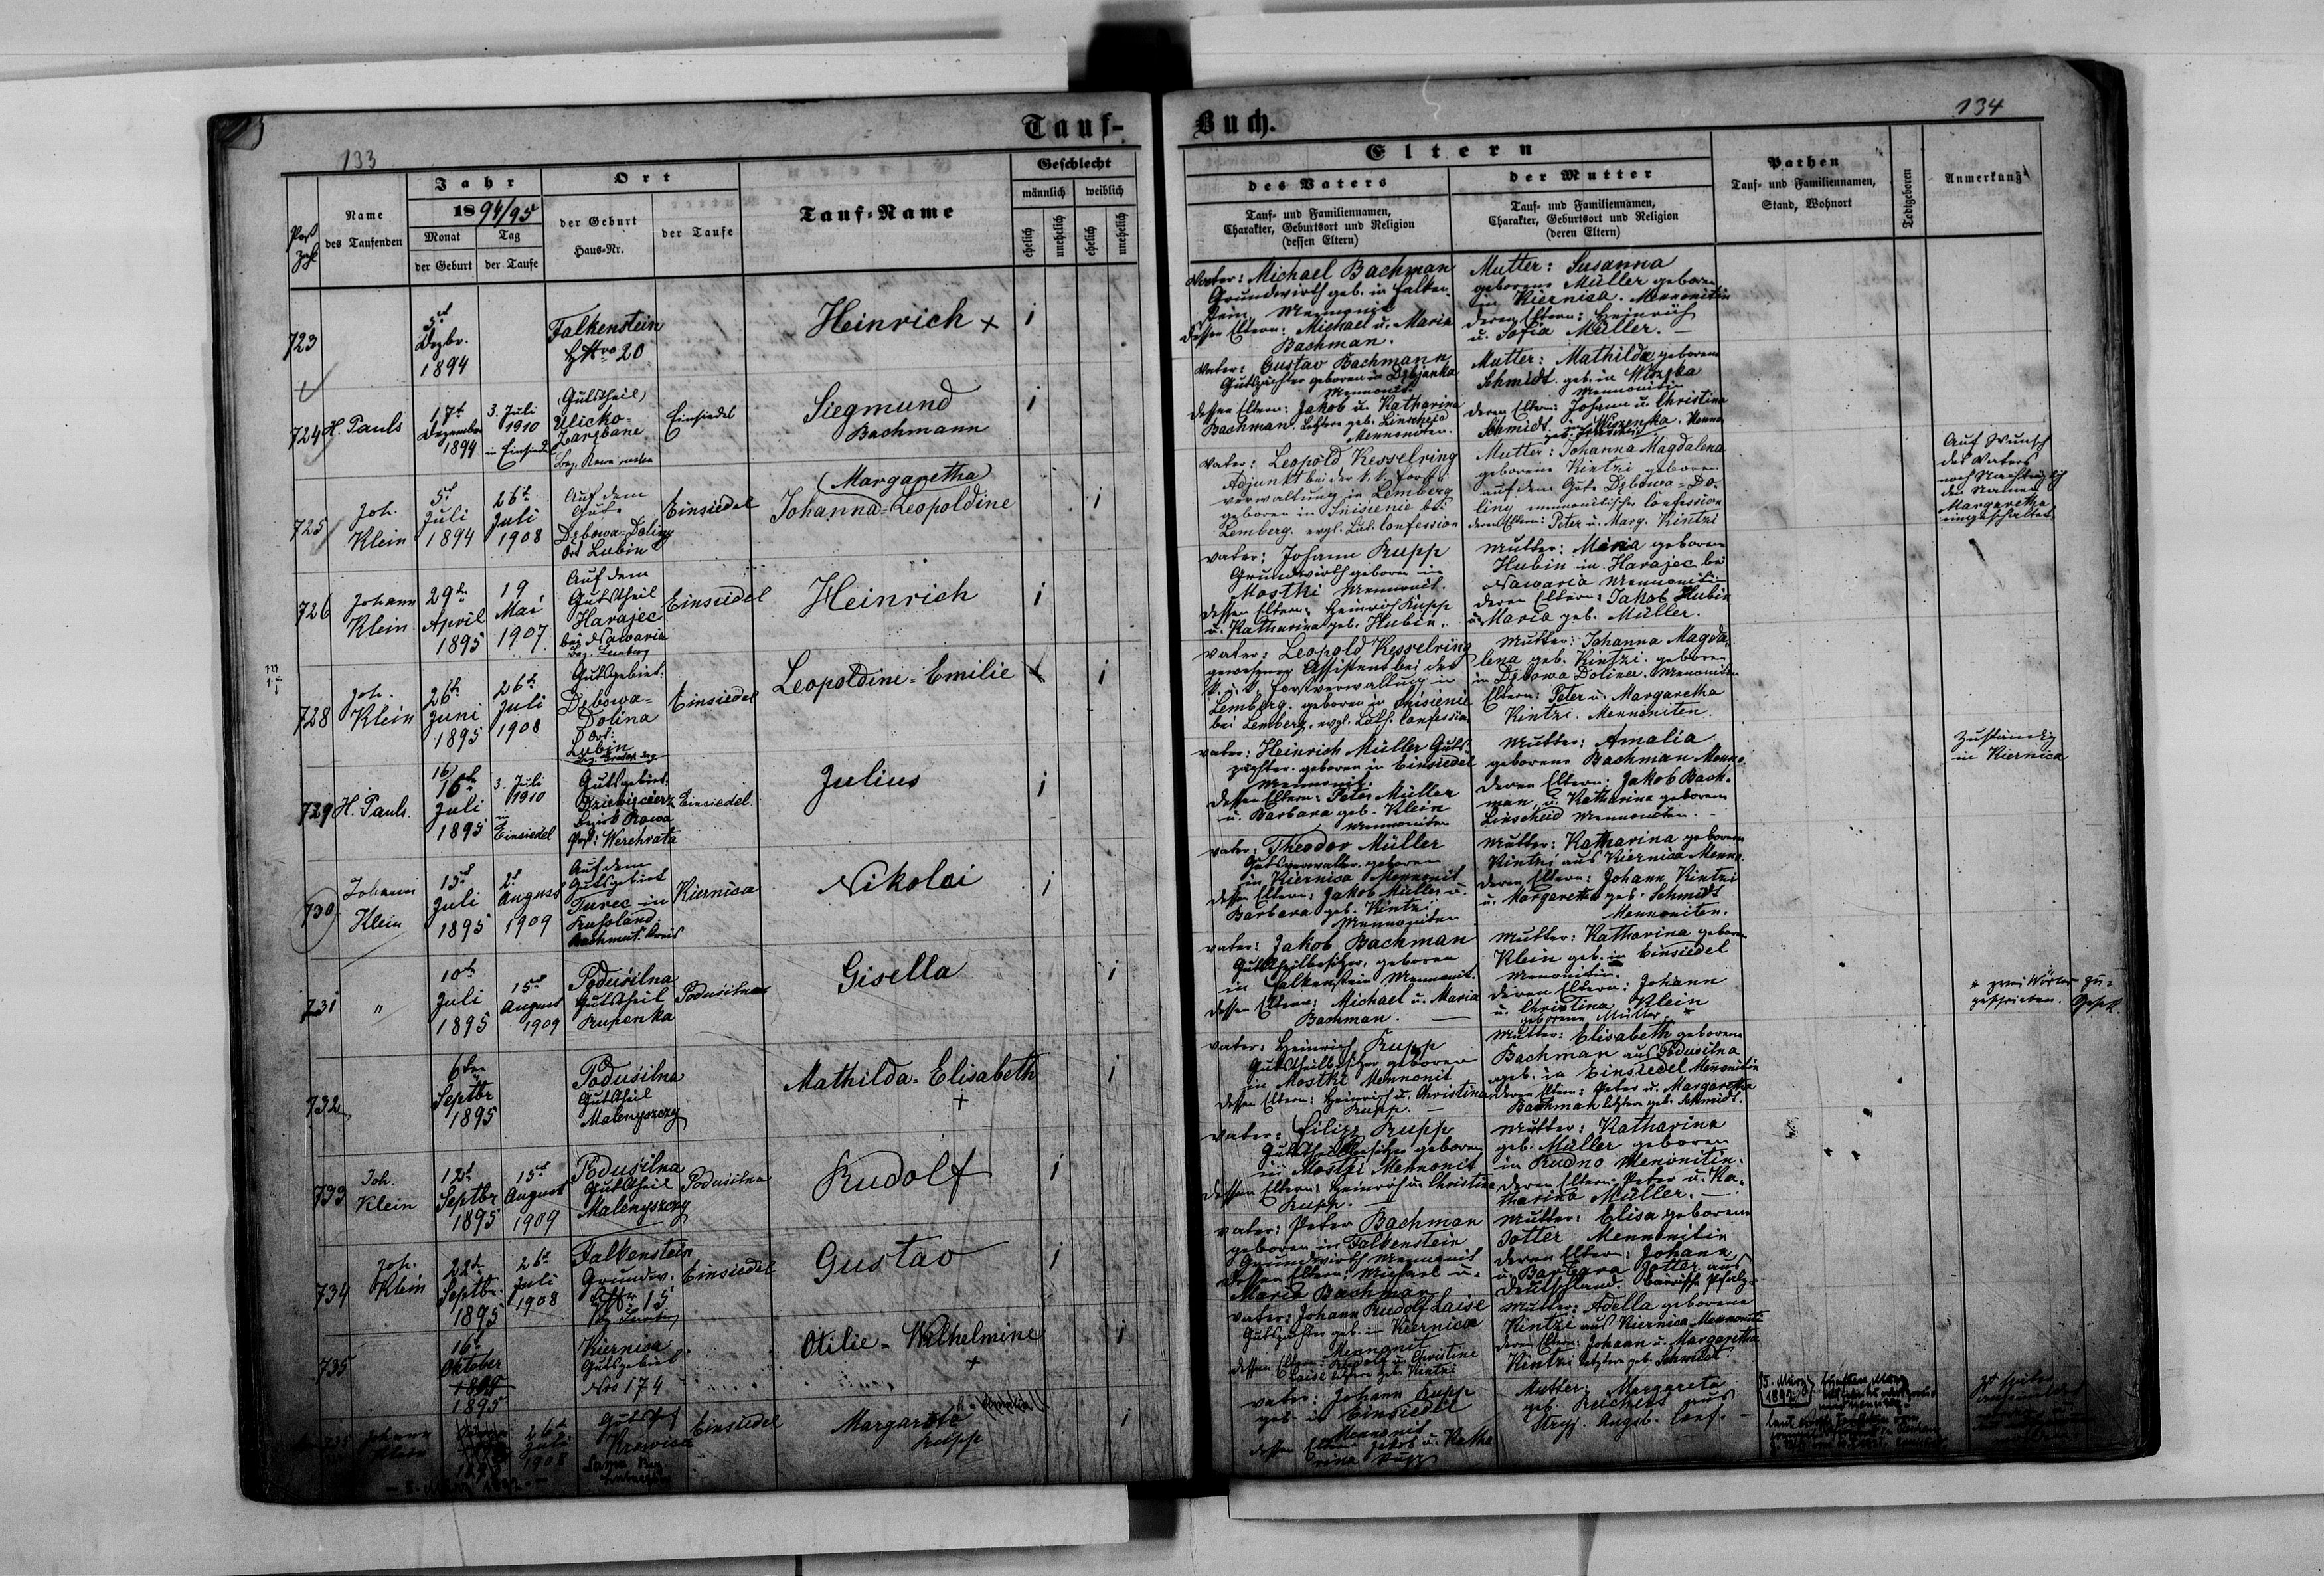 Tauf-
Buch.
133
134
Post
Zahl
Name
des Taufenden
Jahr
1894/95
Monat
Tag
der Geburt
der Taufe
Ort
der Geburt
Haus-Nr.
der Taufe
Tauf-Name
Geschlecht
männlich
weiblich
ehelich
unehelich
ehelich
unehelich
Eltern
des Vaters
Tauf- und Familiennamen,
Charakter, Geburtsort und Religion
(dessen Eltern)
der Mutter
Tauf- und Familiennamen,
Charakter, Geburtsort und Religion
(deren Eltern)
Pathen
Tauf- und Familiennamen,
Stand, Wohnort
Todtgeboren
Anmerkung
723
5t
Dezbr.
1894
Falkenstein
20
Heinrich +
i
Vater: Michael Bachman
Grundwirth geb. in Falken-
stein, Mennonit
dessen Eltern: Michael u. Maria
Bachman.
Mutter: Susanna
geborene Müller geboren
in Kiernica. Mennonitin
deren Eltern: Heinrich
u. Sofia Müller. —
724
H. Pauls
17t
Dezember
1894
3. Juli
1910
in Einsiedel
(Gutstheil)
Ulicko-
Zarębane
Bez. Rawa ruska
Einsiedel
Siegmund
Bachmann
i
Vater: Gustav Bachmann
Gutspächter geboren in Dębjanka
Mennonit.
dessen Eltern: Jakob u. Katharina
Bachman. Letztere geb. Linscheid
Mennoniten.
Mutter: Mathilda geborene
Schmidt. geb. in Wiszenka
Mennonitin
deren Eltern: Johann u. Christina
Schmidt. Wiszenka.
725
Joh.
Klein
5t
Juli
1894
26t
Juli
1908
Auf dem
Gute
Dębowa-Doliny
Ort Lubin
Einsiedel
(Margaretha)
Johanna-Leopoldine
i
Vater: Leopold Kesselring
Adjunkt bei der k. k. Forst-
verwaltung in Lemberg
geboren in bei
Lemberg. evgl. Luth. Confession
Mutter: Johanna Magdalena
geborene Kintzi geboren
auf dem Gute Dębowa-Do-
liny mennonitischer Confession
deren Eltern: Peter u. Marg. Kintzi
Auf Wunsch
des Vaters
noch Nachträglich
den Namen
Margaretha
eingeschaltet
726
Johann
Klein
29t
April
1895
19
Mai
1907.
Auf dem
Gutstheil
Harajec
bei Nawaria
Bez. Lemberg
Einsiedel
Heinrich
i
Vater: Johann Rupp
Grundwirth geboren in
Mostki Mennonit.
dessen Eltern: Heinrich Rupp
u. Katharina geb. Hubin.
Mutter: Maria geborene
Hubin in Harajec bei
Nawaria Mennonitin
deren Eltern: Jakob Hubin
u. Maria geb. Müller.
728
Joh.
Klein
26t
Juni
1895
26t
Juli
1908
Gutsgebiet:
Dębowa-
Dolina
Ort:
Lubin
Einsiedel
Leopoldine-Emilie
i
Vater: Leopold Kesselring
gewesener Assistent bei der
k. k. Forstverwaltung in
Lemberg. geboren in
bei Lemberg, evgl. Luth. Confession
Mutter: Johanna Magda-
lena geb. Kintzi. geboren
in Dębowa Dolina. Mennonitin
Eltern: Peter u. Margaretha
Kintzi. Mennoniten.
729
H. Pauls.
16t
Juli
1895
3. Juli
1910
in
Einsiedel
Gutsgebiet
Dziewięcierz
Bezirk Rawa
Post: Werchrata
Einsiedel.
Julius
i
Vater: Heinrich Müller Guts-
pächter. geboren in Einsiedel
Mennonit.
dessen Eltern: Peter Müller
u. Barbara geb. Klein
Mennoniten
Mutter: Amalia
geborene Bachman Menno.
deren Eltern: Jakob Bach-
man, u. Katharina geborene
Linscheid Mennoniten.
zuständig
in Kiernica
730
Johann
Klein
15t
Juli
1895
2t
August
1909
Auf dem
Gutsgebiet
Turec in
Russland.
Kiernica
Nikolai
i
Vater: Theodor Müller
Gutsverwalter. geboren
in Kiernica Mennonit
dessen Eltern: Jakob Müller u.
Barbara geb. Kintzi
Mennoniten
Mutter: Katharina geborene
Kintzi aus Kiernica Menno.
deren Eltern: Johann Kintzi
u. Margaretha geb. Schmidt
Mennoniten.
731
"
10t
Juli
1895
15t
August
1909
Podusilna
Gutstheil
Rupenka
Podusilna
Gisella
i
Vater: Jakob Bachman
Gutstheilbesitzer, geboren
in Falkenstein Mennonit.
dessen Eltern: Michael u. Maria
Bachman. —
Mutter: Katharina geborene
Klein geb. in Einsiedel
Mennonitin.
deren Eltern: Johann
u. Christina Klein
geborene Müller *
* zwei Wörter zu-
geschrieben.
732
6ten
Septbr
1895
Podusilna
Gutstheil
Malenyszczy
Mathilda-Elisabeth
+
i
Vater: Heinrich Rupp
Gutstheilbesitzer geboren
in Mostki Mennonit
dessen Eltern: Heinrich u. Christina
Rupp. —
Mutter: Elisabeth geborene
Bachman aus Podusilna
geb. in Einsiedel Mennonitin
deren Eltern: Peter u. Margaretha
Bachman letztere geb. Schmidt.
733
Joh.
Klein
12t
Septbr
1895
15t
August
1909
Podusilna
Gutstheil
Malenyszczy
Podusilna
Rudolf
i
Vater: Filipp Rupp
Gutstheilbesitzer geboren
in Mostki Mennonit
dessen Eltern: Heinrich u. Christina
Rupp. —
Mutter: Katharina
geb. Müller geboren
in Rudno Menonitin.
deren Eltern: Peter u. Ka-
tharina Müller. —
734
Joh.
Klein
22t
Septbr.
1895
26t
Juli
1908
Falkenstein
Grundw.
15
Einsiedel
Gustav
i
Vater: Peter Bachman
geboren in Falkenstein
Grundwirth Mennonit
dessen Eltern: Michael u.
Maria Bachman
Mutter: Elisa geborene
Jotter Mennonitin
deren Eltern: Johann
u. Barbara Jotter aus
Deutschland. bairisch Pfalz.
735
16t
Oktober
1895
Kiernica
Gutsgebiet
Nro 174
Otilie-Wilhelmine
+
i
Vater: Johann Rudolf Laise
Gutspächter geb. in Kiernica
Mennonit
dessen Eltern: Rudolf u. Christine
Laise letztere geb. Kintzi
Mutter: Adella geborene
Kintzi aus Kiernica Mennonitin
deren Eltern: Johann u. Margaretha
Kintzi letztere geb. Schmidt.
Johann
Klein
26t
Juli
1908
Gutshof
Krowica
Einsiedel
Margareta
Rupp
i
Vater: Johann Rupp
geb. in Einsiedel
Mennonit
dessen Eltern Jakob u. Katha
rina Rupp
Mutter: Margareta
geb. Ruchels aus
Stryj. Augsb. Conf. —
5. März
1892